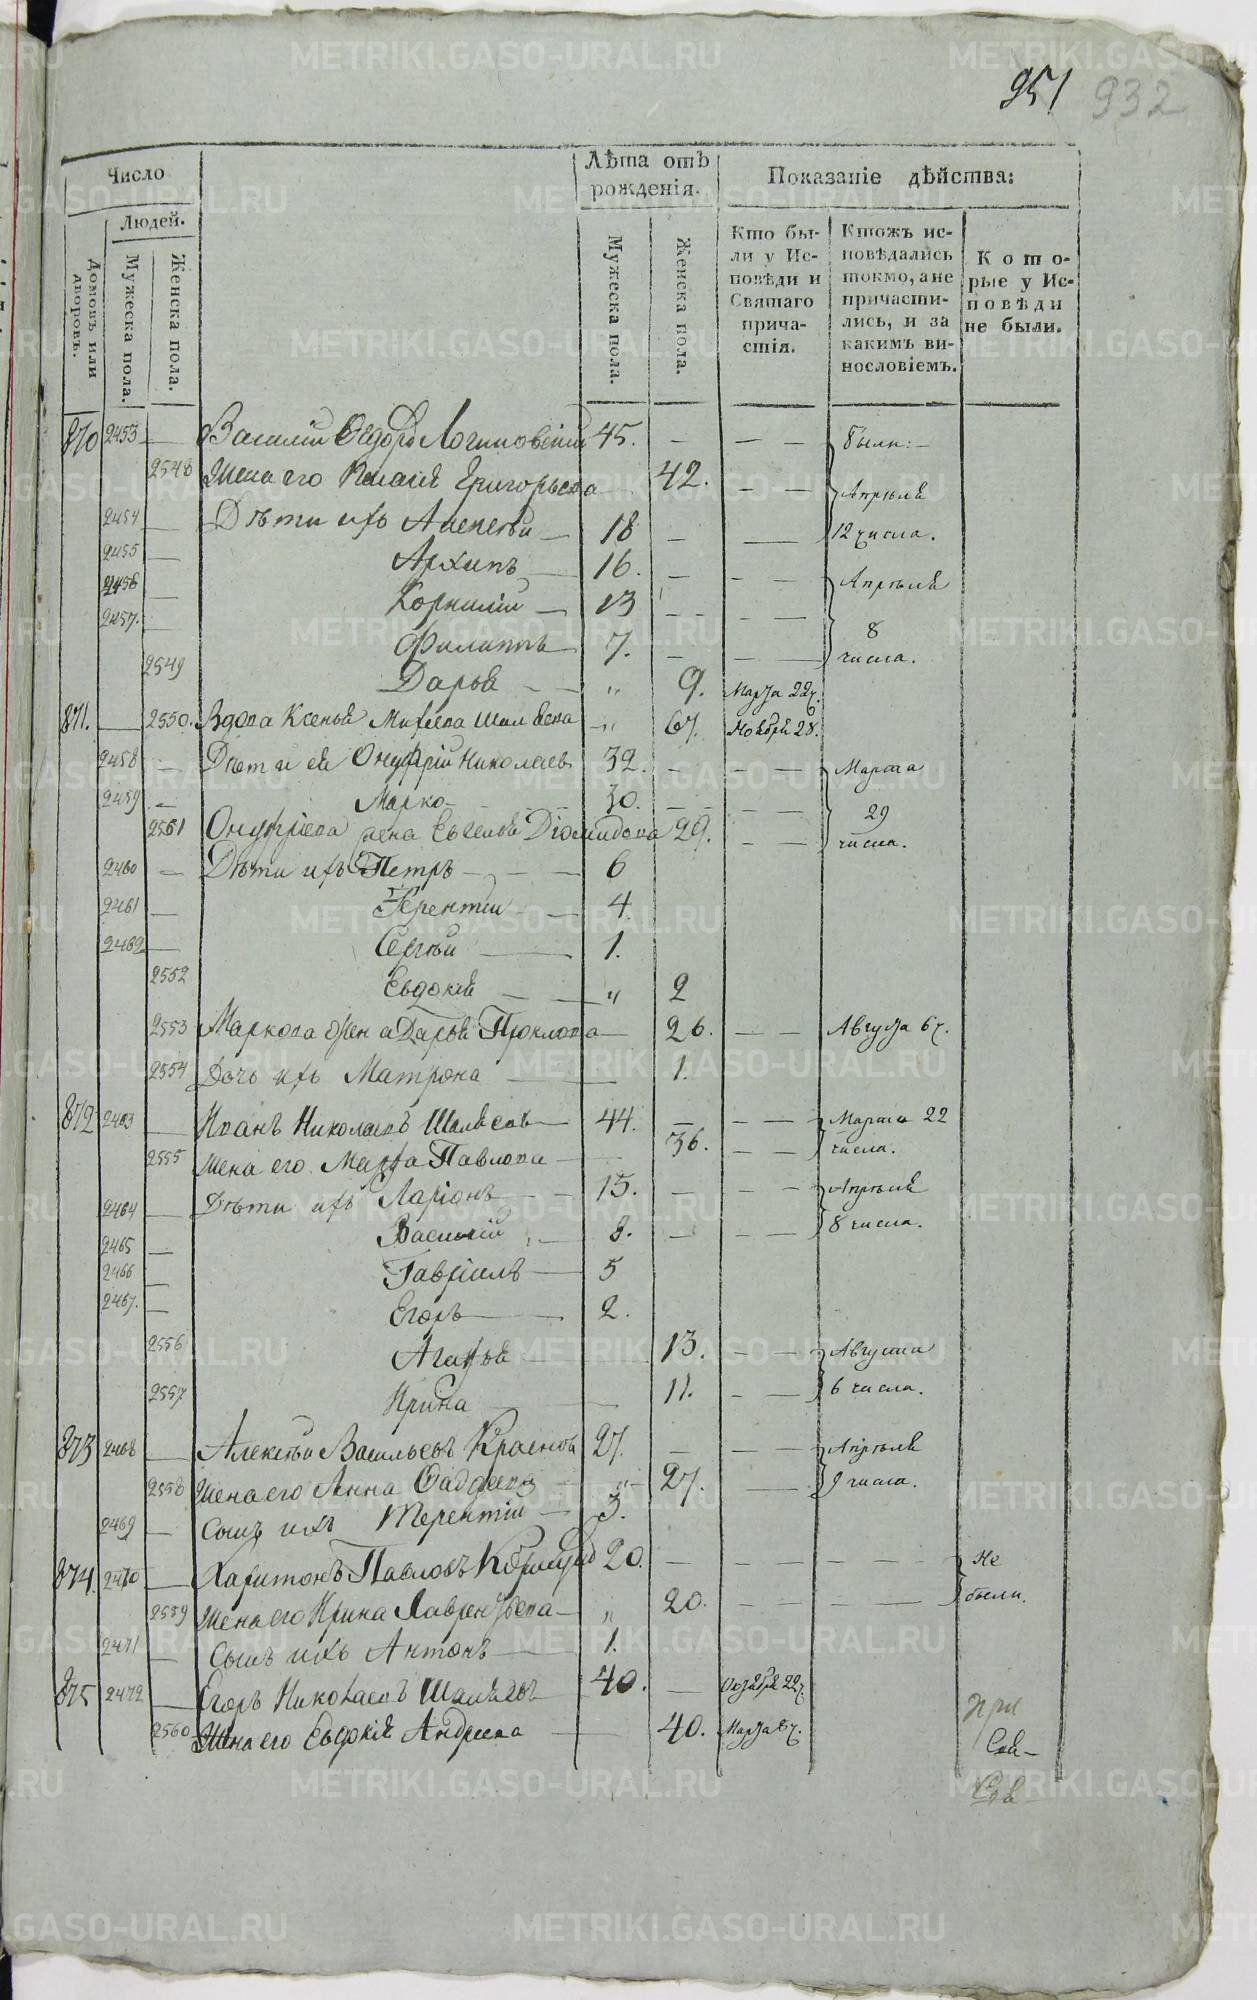 951 932
Число
Лѣта отъ рожденія.
Показаніе дѣйства:
Людей.
Домовъ или дворовъ.
Мужеска пола.
Женска пола.
Мужеска пола.
Женска пола.
Кто бы-
ли у Ис-
повѣди и
Святаго
прича-
стія.
Ктожъ ис-
повѣдались
токмо, а не
причасти-
лись, и за
какимъ ви-
нословіемъ.
Кото-
рые у Ис-
повѣди
не были.
870 2453 — Василій Ѳедоро Логиновскій 45. — — — были: —
2548 Жена его Григорьева — 42. — — Апрѣля
2454 — Дѣти ихъ Алексѣй — 18 — — 12 числа.
2455 — Архипъ — 16. — — — Апрѣля
2456 — Корнилій — 13 — — —
2457. — Филиппъ — 7. — — — 8 числа.
2549 Дарья — — „ 9. Марта 22.
871. — 2550. Вдова Ксенья „ 67. Ноября 28.
2458 — Дѣти ей Онуфрій Николаевъ 32. — — — Марта
2459 — Марко — 30. — — — 29
2551 Онуфріева жена Евгенья Діомидова 29. — — числа.
2460 — Дѣти ихъ Петръ — — — 6
2461 — Терентій — — 4
2462 — Сергѣй — 1.
2552 Евдокія — — „ 2
2553 Маркова жена Дарья Проклова — 26. — — Августа 6.
2554 Дочь ихъ Матрона — — 1.
872 2463 — Иванъ Николаевъ 44. — — — Марта 22
2555 Жена его Марфа Павлова — 36. — — числа.
2464 — Дѣти ихъ Ларіонъ — — 15. — — — Апрѣля
2465 — Василій 8. — — — 8 числа.
2466 — Гавріилъ — 5
2467. — Егоръ — 2.
2556 Агафья — 13. — — Августа
2557 Ирина — 11. — — 6 числа.
873 2468 — Алексѣй Васильевъ Краснов 27. — — — Апрѣля
2558 Жена его Анна Фаддеева „ 27. — 9 числа.
2469 — Сынъ ихъ Терентій — 3.
874. 2470 — Харитонъ Павловъ 20. — — — — — Не
2559 Жена его Ирина Лаврентьева — „ 20. — — — — были.
2471 — Сынъ ихъ Антонъ — 1.
875 2472 — Егоръ Николаевъ 40. — Октября 22.
2560 Жена его Евдокія Андреева — 40. Марта 8.
при
METRIKI.GASO-URAL.RU